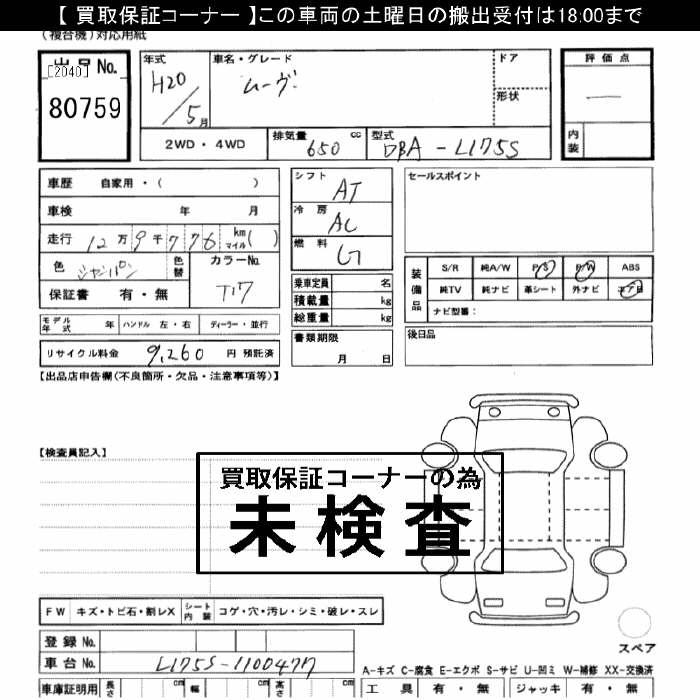 【 買取保証コーナー 】この車両の土曜日の搬出受付は18:00まで
(複合機)対応用紙
出品No.
[2040]
80759
年式
H20/5月
車名・グレード
ムーヴ
ドア
形状
評価点
—
内装
2WD・4WD
排気量 650 cc
型式 DBA-L175S
車歴 自家用・( )
車検 年 月
走行 12万9千776 km マイル( )
色 シャンパン 色替
カラーNo. T17
保証書 有・無
シフト AT
冷房 AC
燃料 G
乗車定員 名
積載量 kg
総重量 kg
書類期限
月 日
セールスポイント
装備品
S/R 純A/W P/S P/W ABS
純TV 純ナビ 革シート 外ナビ エアB
ナビ型番:
後日品
モデル年式 年 ハンドル 左・右 ディーラー・並行
リサイクル料金 9,260 円 預託済
【出品店申告欄(不良箇所・欠品・注意事項等)】
【検査員記入】
買取保証コーナーの為
未検査
FW キズ・トビ石・割レX シート内装 コゲ・穴・汚レ・シミ・破レ・スレ
登録No.
車台No. L175S-1100477
スペア
A-キズ C-腐食 E-エクボ S-サビ U-凹ミ W-補修 XX-交換済
車庫証明用 長さ cm 幅 cm 高さ cm
工具 有・無 ジャッキ 有・無